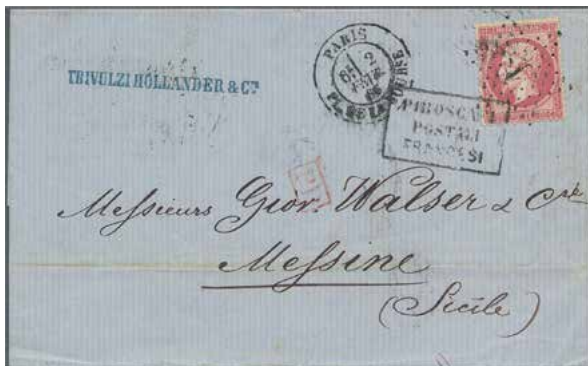 TRIVULZI HOLLANDER & Cⁱᵉ
PARIS
6E 2
PL. DE LA BOURSE
PIROSCAFI
POSTALI
FRANCESI
PD
Messieurs Giov. Walser & Cⁱᵉ
Messine
(Sicile)